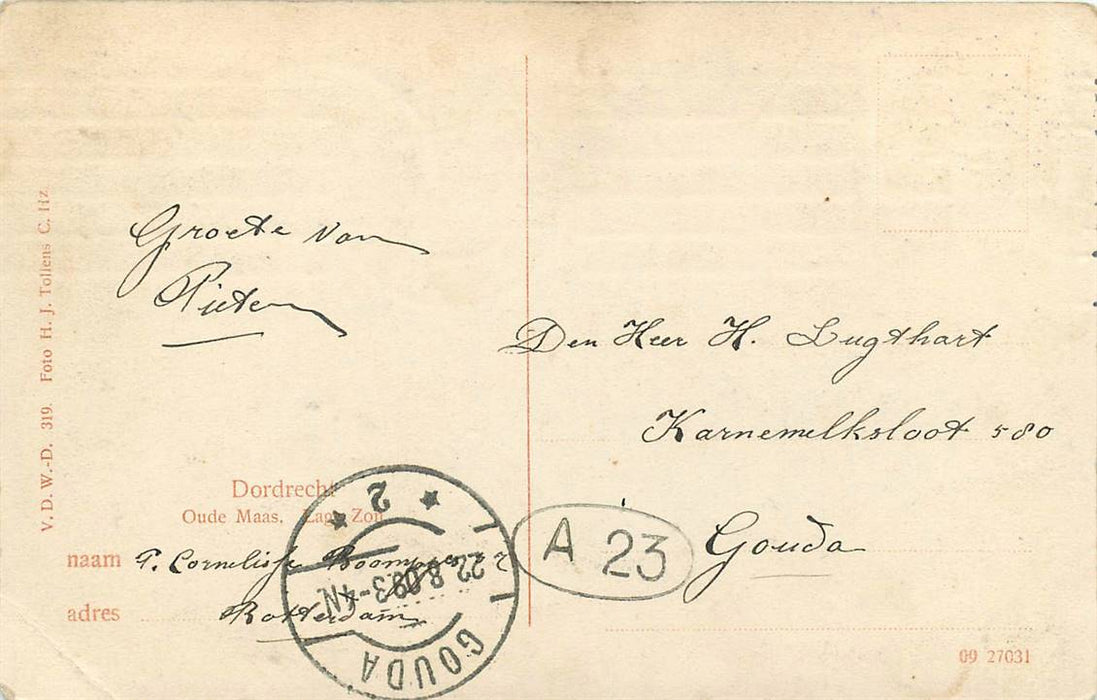 V. D. W.-D. 319. Foto H. J. Tollens C. Hz.
Groete van
Pieter
Dordrecht
Oude Maas. Lage Zon
naam P. Cornelisse
adres Rotterdam
2
22.8.09 3-4N
GOUDA
Den Heer H. Lugthart
Karnemelksloot 580
A 23
Gouda
09 27031